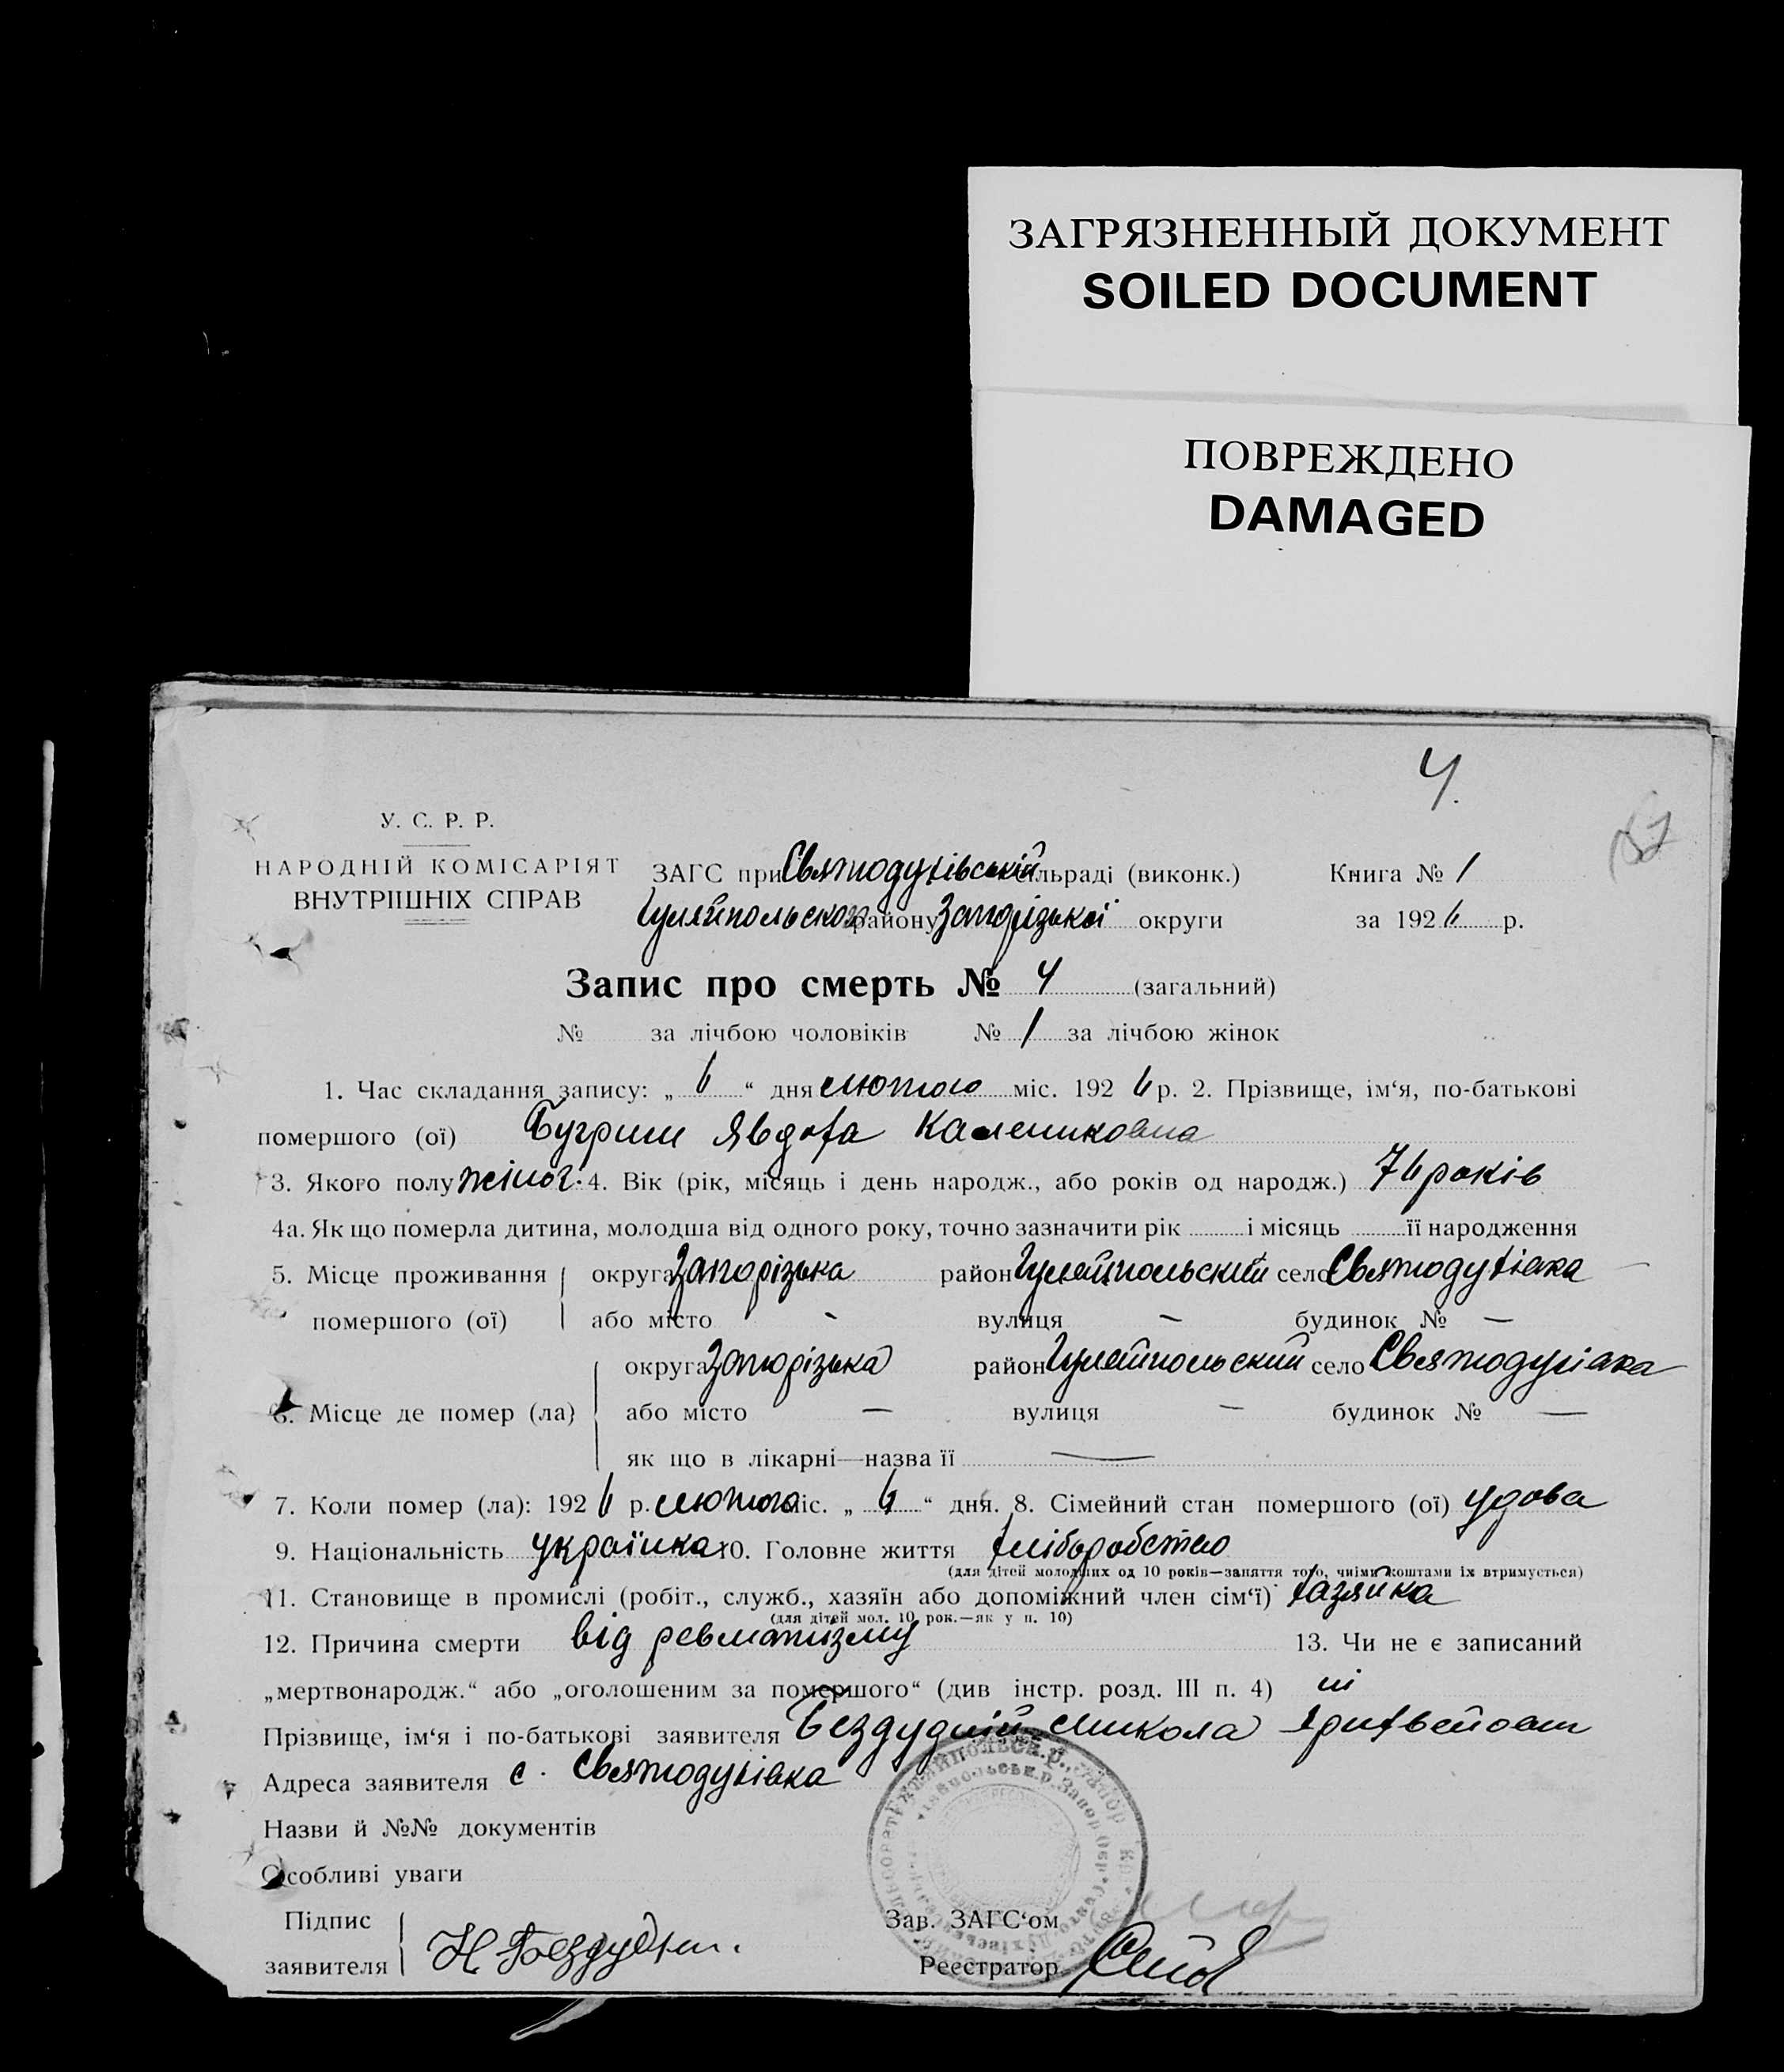 ЗАГРЯЗНЕННЫЙ ДОКУМЕНТ
SOILED DOCUMENT
ПОВРЕЖДЕНО
DAMAGED
4.
У. С. Р. Р.
НАРОДНІЙ КОМІСАРІЯТ
ВНУТРІШНІХ СПРАВ
ЗАГС при Святодухівській сільраді (виконк.) Книга № 1
Гуляйпольского району Запорізької округи за 1926 р.
Запис про смерть № 4 (загальний)
№ за лічбою чоловіків № 1 за лічбою жінок
1. Час складання запису: „ 6 “ дня лютого міс. 1926 р. 2. Прізвище, ім‘я, по-батькові
помершого (ої) Бугрим Явдоха Калениковна
3. Якого полу жіноч. 4. Вік (рік, місяць і день народж., або років од народж.) 76 років
4а. Як що померла дитина, молодша від одного року, точно зазначити рік і місяць її народження
5. Місце проживання округа Запорізька район Гуляйпольский село Святодухівка
помершого (ої) або місто - вулиця — будинок № —
округа Запорізька район Гуляйпольский село Святодухівка
6. Місце де помер (ла) або місто — вулиця — будинок № —
як що в лікарні—назва її —
7. Коли помер (ла): 1926 р. лютого міс. „ 6 “ дня. 8. Сімейний стан помершого (ої) удова
9. Національність українка 10. Головне життя хліборобство
(для дітей молодших од 10 років—заняття того, чиїми коштами їх втримується)
11. Становище в промислі (робіт., служб., хазяїн або допоміжний член сім‘ї) хазяйка
(для дітей мол. 10 рок.—як у п. 10)
12. Причина смерти від ревматизму 13. Чи не є записаний
„мертвонародж.“ або „оголошеним за помершого“ (див інстр. розд. III п. 4) ні
Прізвище, ім‘я і по-батькові заявителя Бездудній Микола
Адреса заявителя с. Святодухівка
Назви й №№ документів
Особливі уваги
Підпис
заявителя Н Бездудн.
Зав. ЗАГС‘ом
Реєстратор